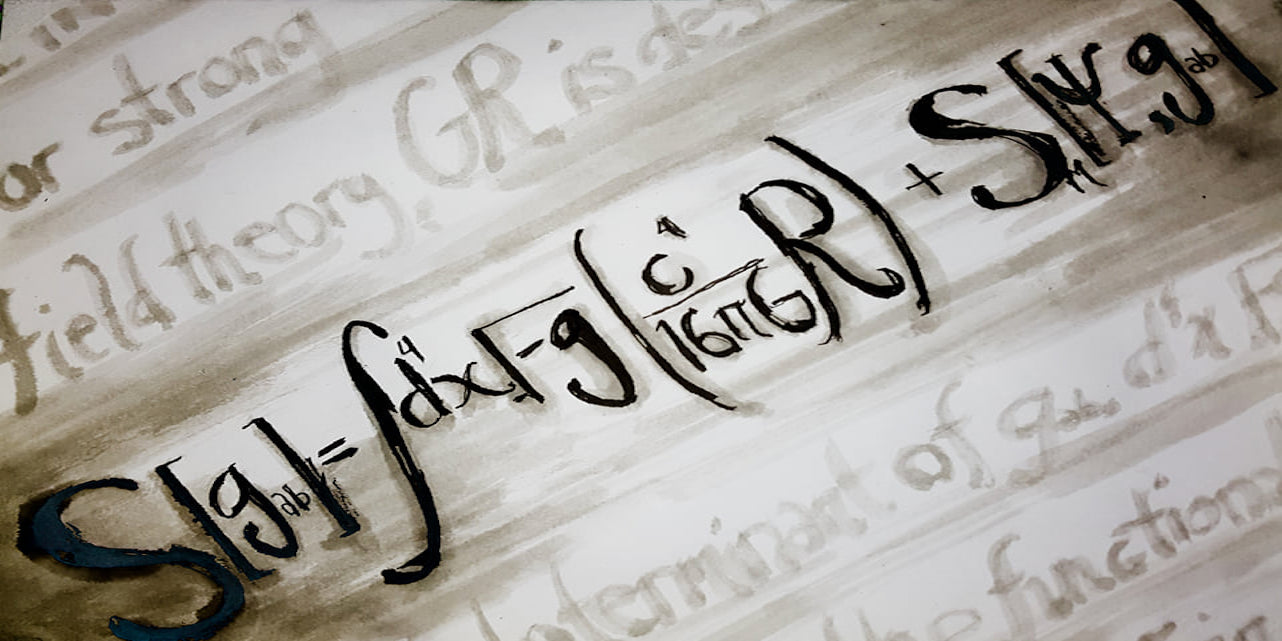 or strong
field theory, GR is des
S[g_ab] = ∫d⁴x√-g (c⁴/16πG R) + S_M[Ψ, g_ab]
determinant of g_ab. d⁴x√
the functiona
in